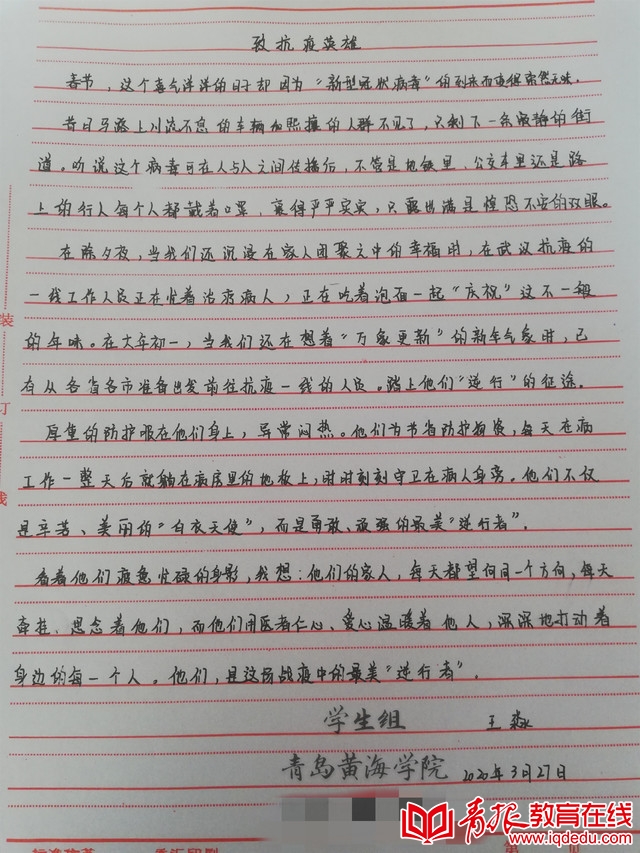 致抗疫英雄
春节，这个喜气洋洋的日子却因为“新型冠状病毒”的到来而变得索然无味。
昔日马路上川流不息的车辆加熙攘的人群不见了，只剩下一条寂静的街
道。听说这个病毒可在人与人之间传播后，不管是地铁里、公交车里还是路
上的行人每个人都戴着口罩，裹得严严实实，只露出满是惶恐不安的双眼。
在除夕夜，当我们还沉浸在家人团聚之中的幸福时，在武汉抗疫的
一线工作人员正在忙着治疗病人，正在吃着泡面一起“庆祝”这不一般
的年味。在大年初一，当我们还在想着“万象更新”的新年气象时，已
有从各省各市准备出发前往抗疫一线的人员。踏上他们“逆行”的征途。
厚重的防护服在他们身上，异常闷热。他们为节省防护物资，每天在病
工作一整天后就躺在病床里的地板上，时时刻刻守卫在病人身旁。他们不仅
是辛苦、美丽的“白衣天使”，而是勇敢、顽强的最美“逆行者”。
看着他们疲惫忙碌的身影，我想：他们的家人，每天都望向同一个方向，每天
牵挂、思念着他们，而他们用医者仁心、爱心温暖着他人，深深地打动着
身边的每一个人。他们，是这场战疫中的最美“逆行者”.
学生组 王淼
青岛黄海学院 2020年3月27日
装
订
线
青报教育在线
www.iqdedu.com
第 页